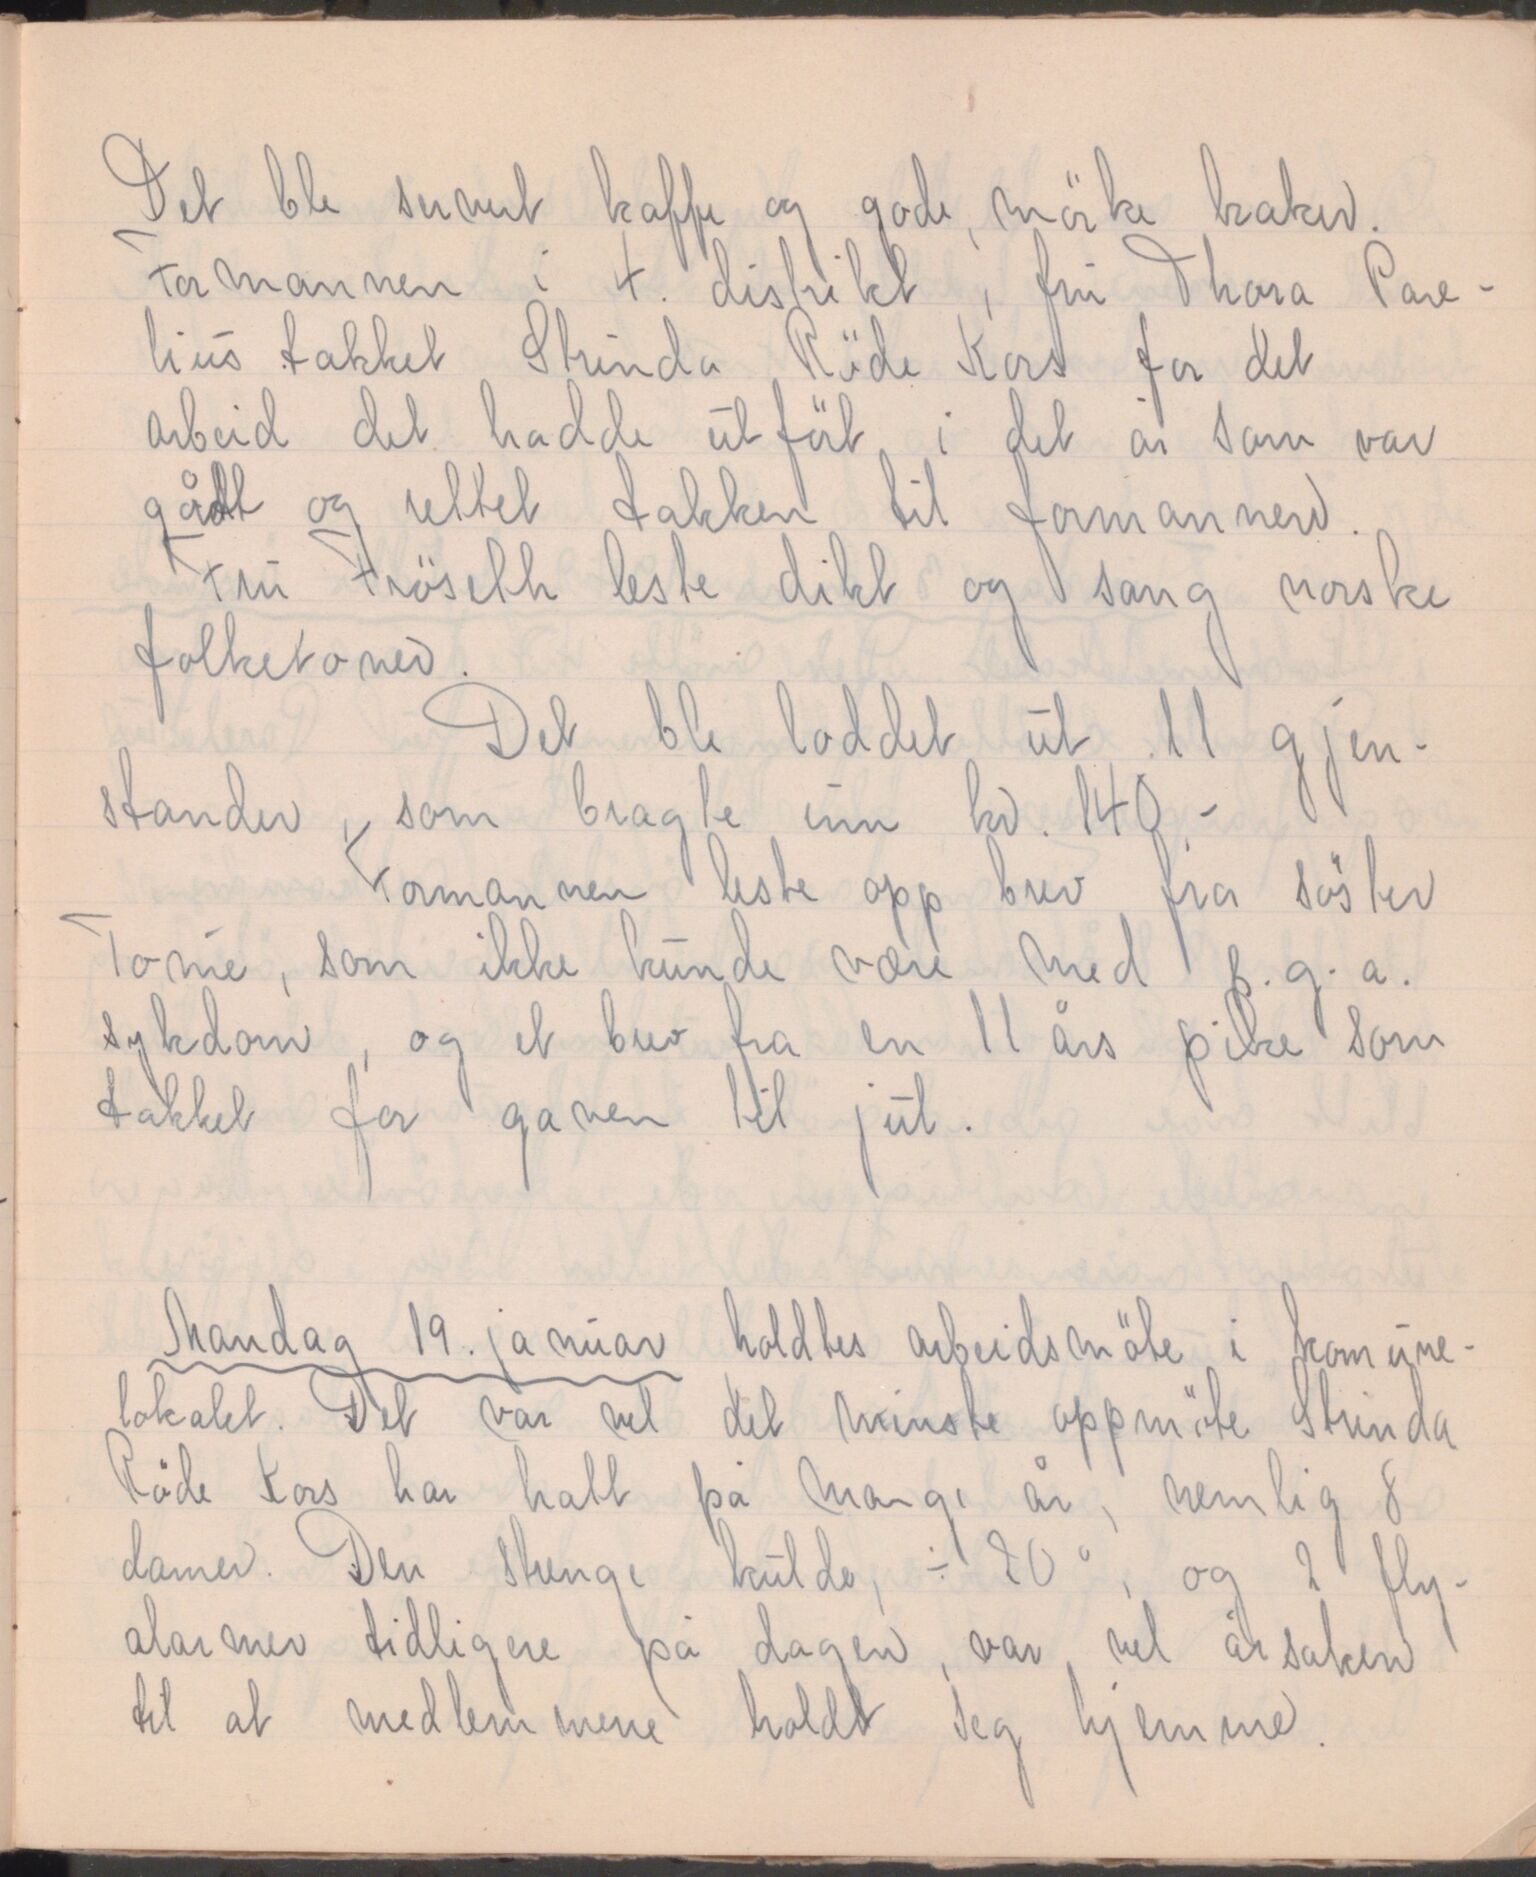 Det ble servert kaffe og gode, mörke kaker.
Formannen i 4. distrikt, fru Thora Pare-
lius takket Strinda Röde Kors for det
arbeid det hadde utfört i det år som var
gådt og rettet takken til formannen.
Fru Frösetth leste dikt og sang norske
folketoner.
Det ble loddet ut 11 gjen-
stander, som bragte inn kr. 140,-
Formannen leste opp brev fra söster
Tomé, som ikke kunde være med p.g.a.
sykdom, og et brev fra en 11 års pike som
takket for gaven til jul.
Mandag 19. januar holdtes arbeidsmöte i komune-
lokalet. Det var vel det minste oppmöte Strinda
Röde Kors har hatt på mange år, nemlig 8
damer. Den strenge kulde, ÷ 20°, og 2 fly-
alarmer tidligere på dagen, var vel årsaken
til at medlemmene holdt seg hjemme.